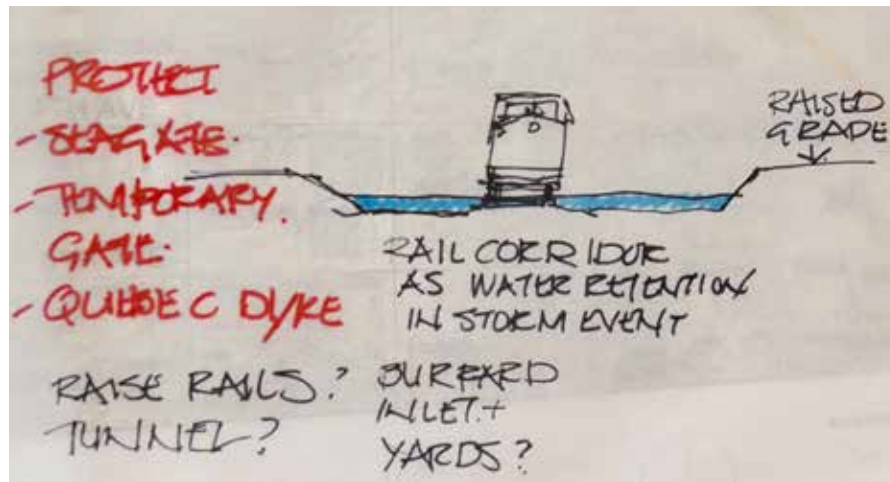 PROTECT
- SEAGATE.
- TEMPORARY.
GATE.
- QUEBEC DYKE
RAISED
GRADE
RAIL CORRIDOR
AS WATER RETENTION
IN STORM EVENT
RAISE RAILS?
TUNNEL?
BURRARD
INLET +
YARDS?